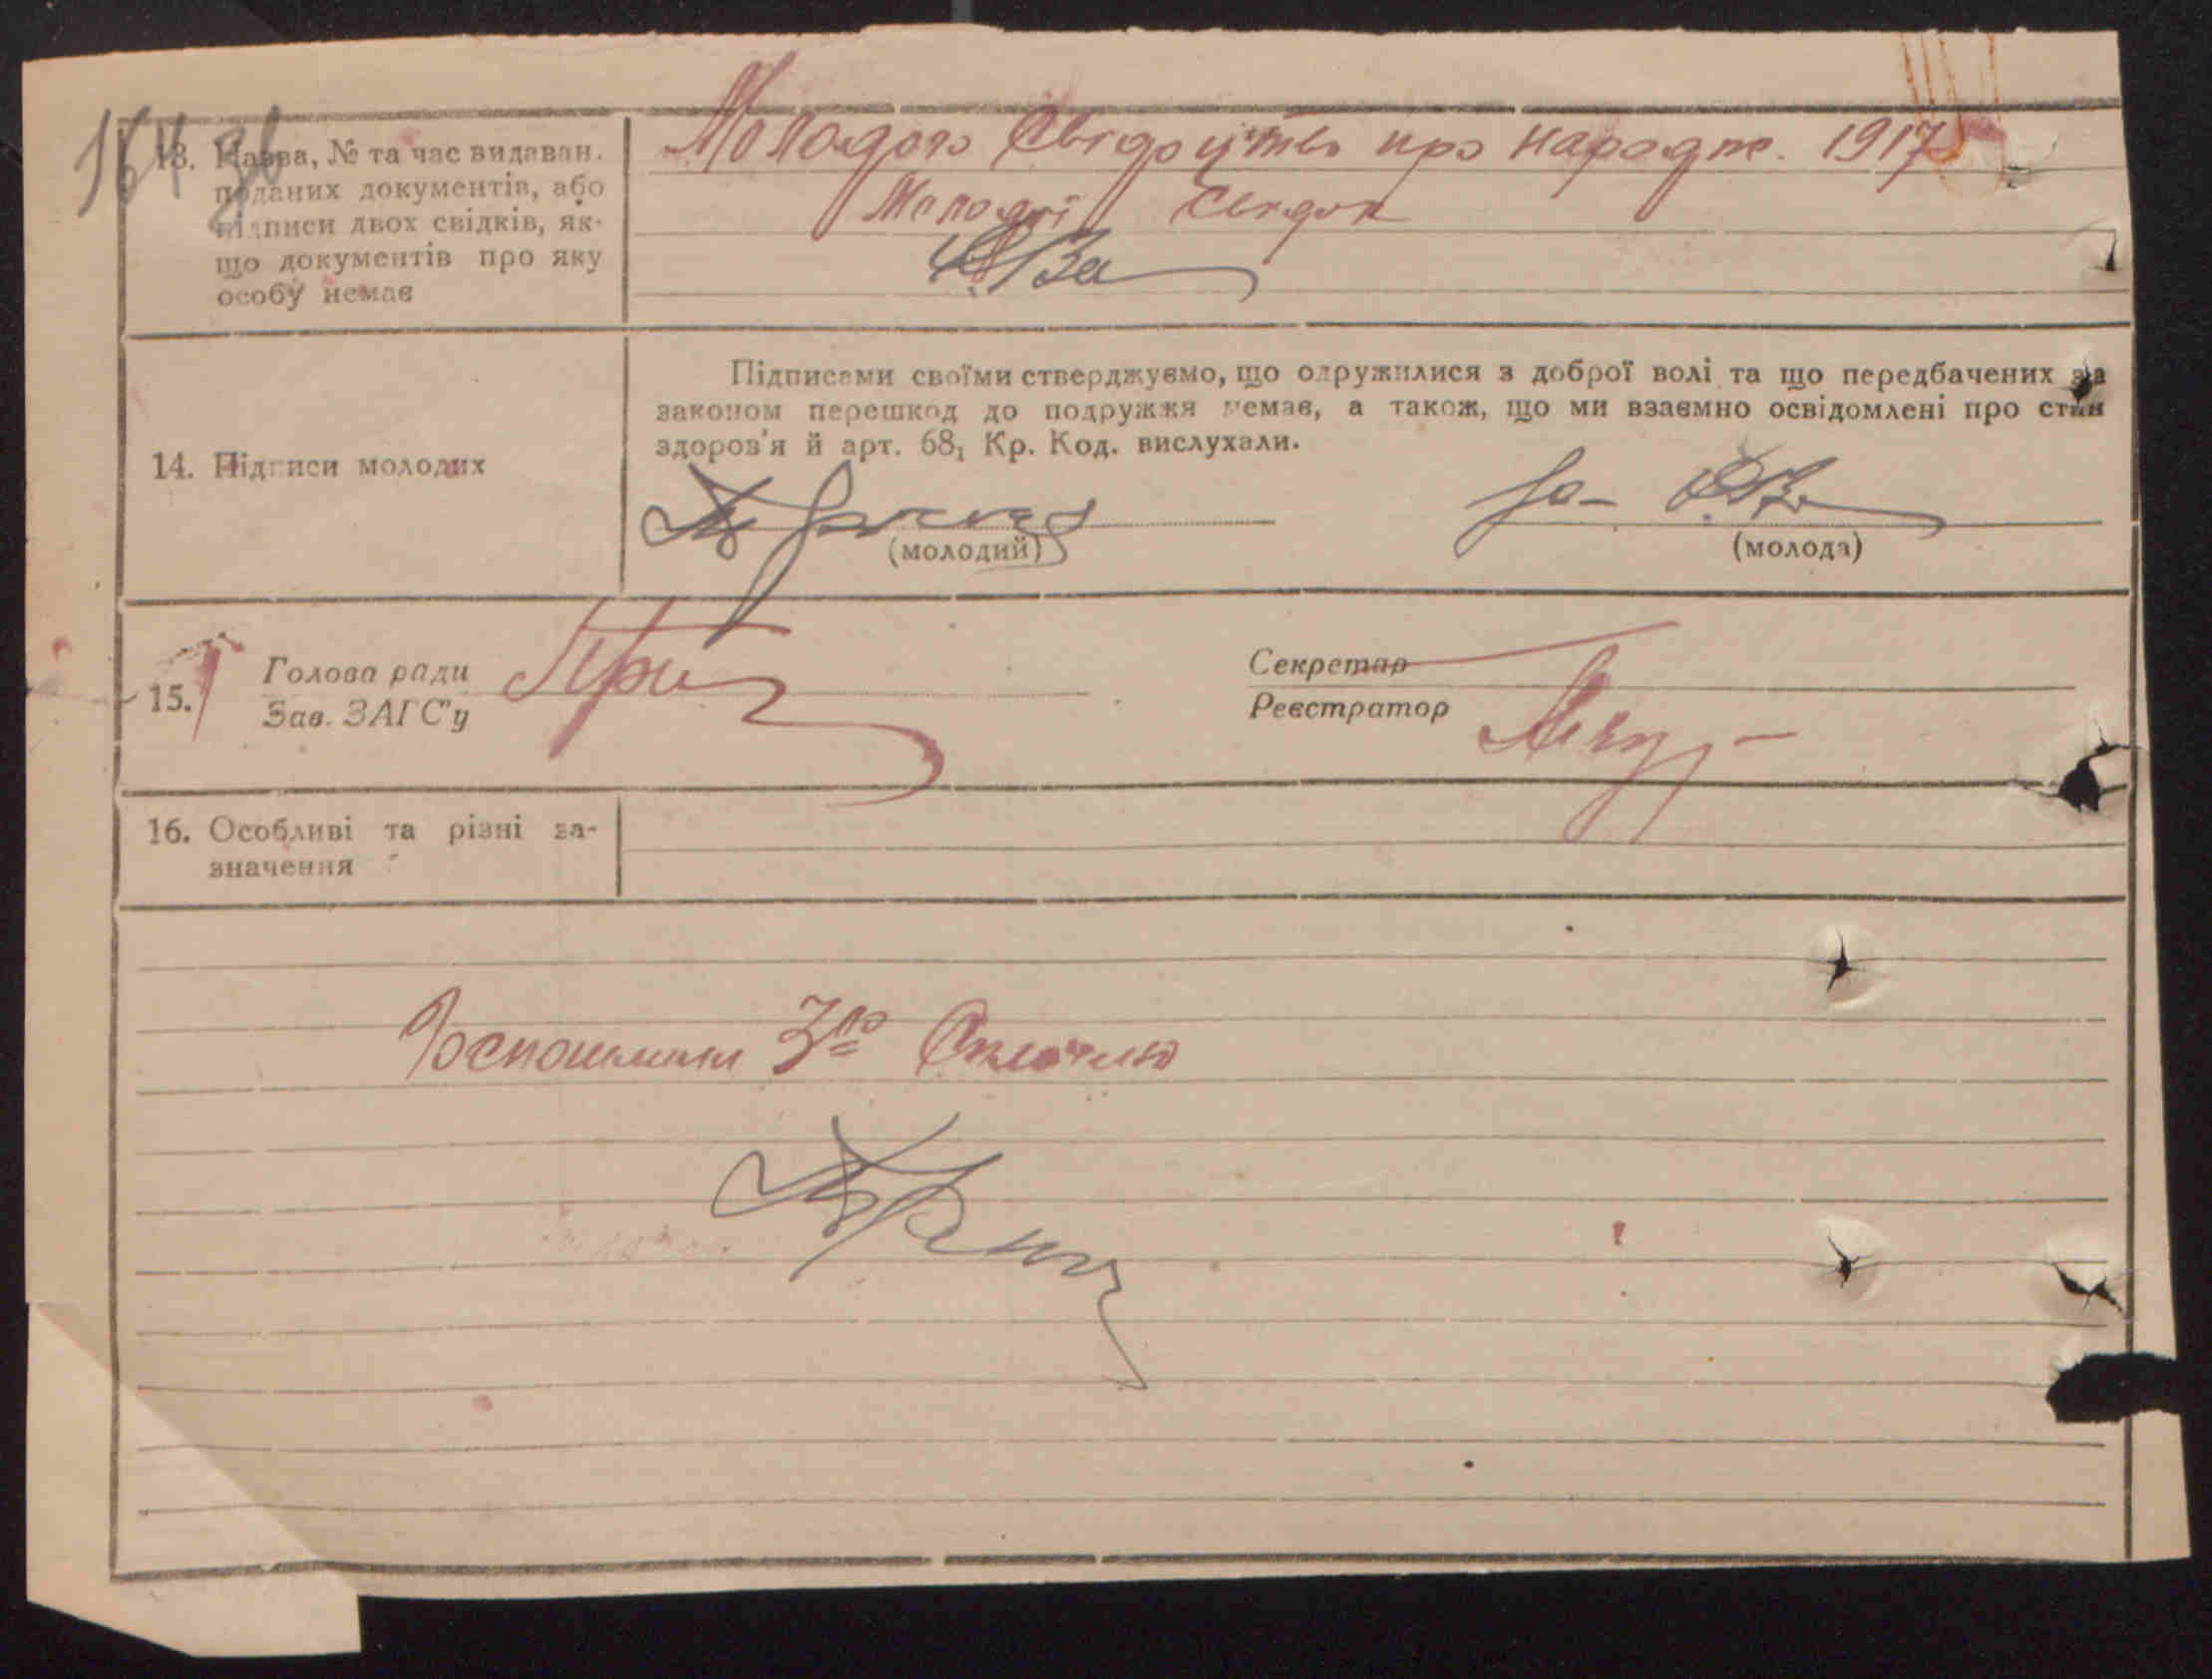 164 зв
13. Назва, № та час видаван.
поданих документів, або
підписи двох свідків, як-
що документів про яку
особу немає
Молодого Свідоцтво про народж. 1917
Молодої Свідок
14. Підписи молодих
Підписами своїми стверджуємо, що одружилися з доброї волі та що передбачених за
законом перешкод до подружжя немає, а також, що ми взаємно освідомлені про стан
здоров'я й арт. 68₁ Кр. Код. вислухали.
За
(молодий)
(молода)
15.
Голова ради
Зав. ЗАГС'у
Секретар
Реєстратор
16. Особливі та різні за-
значення